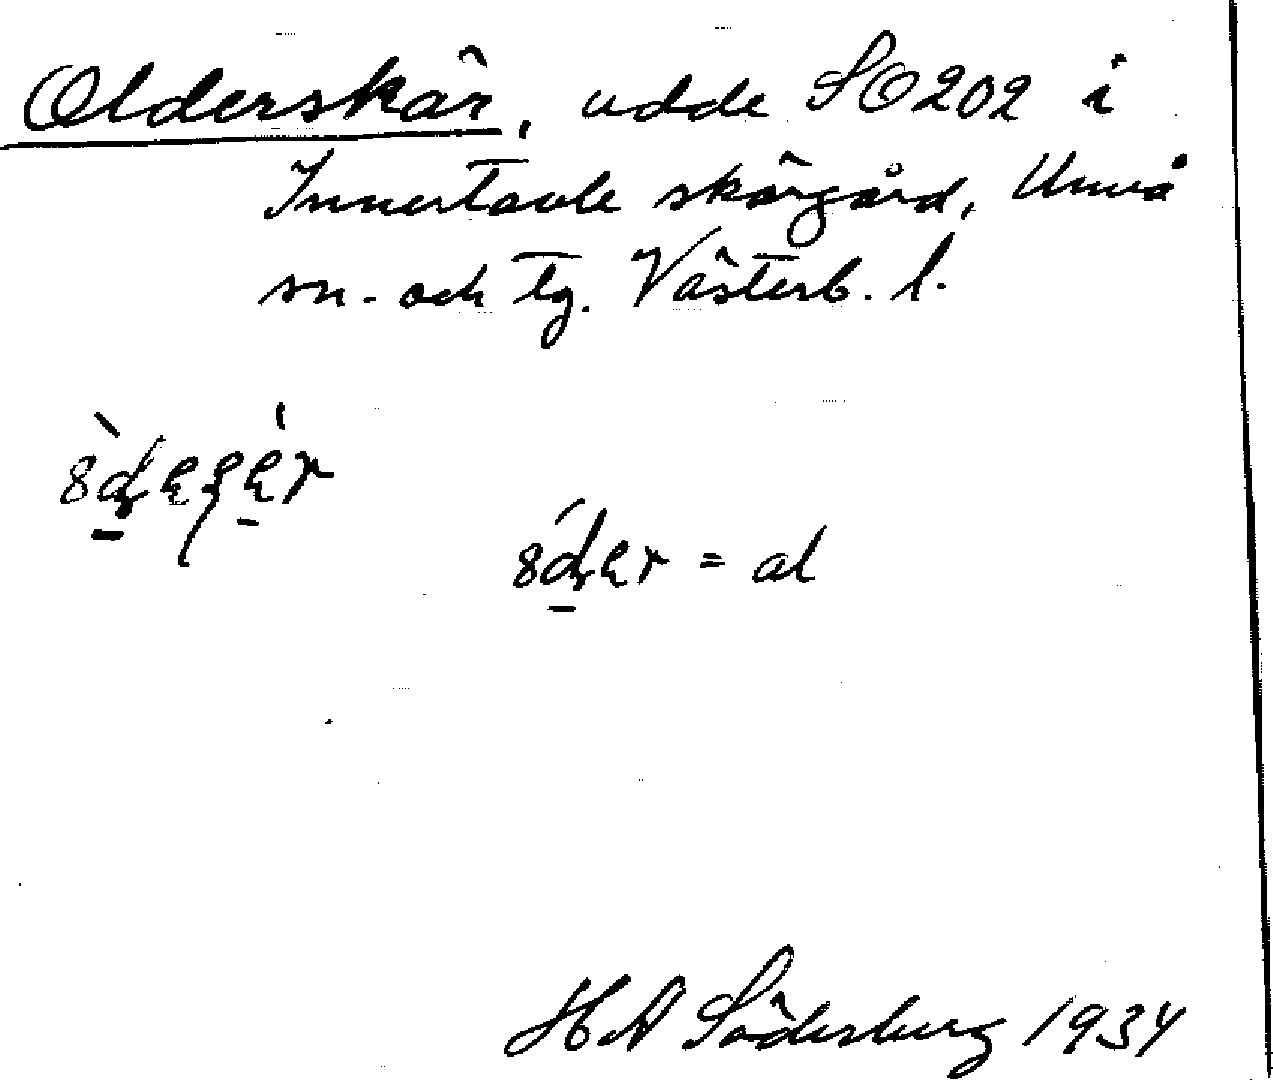 Olderskär, udde SO202 i
Innertavle skärgård, Umeå
sn. och tg. Västerb. l.
= al
H A Söderberg 1934